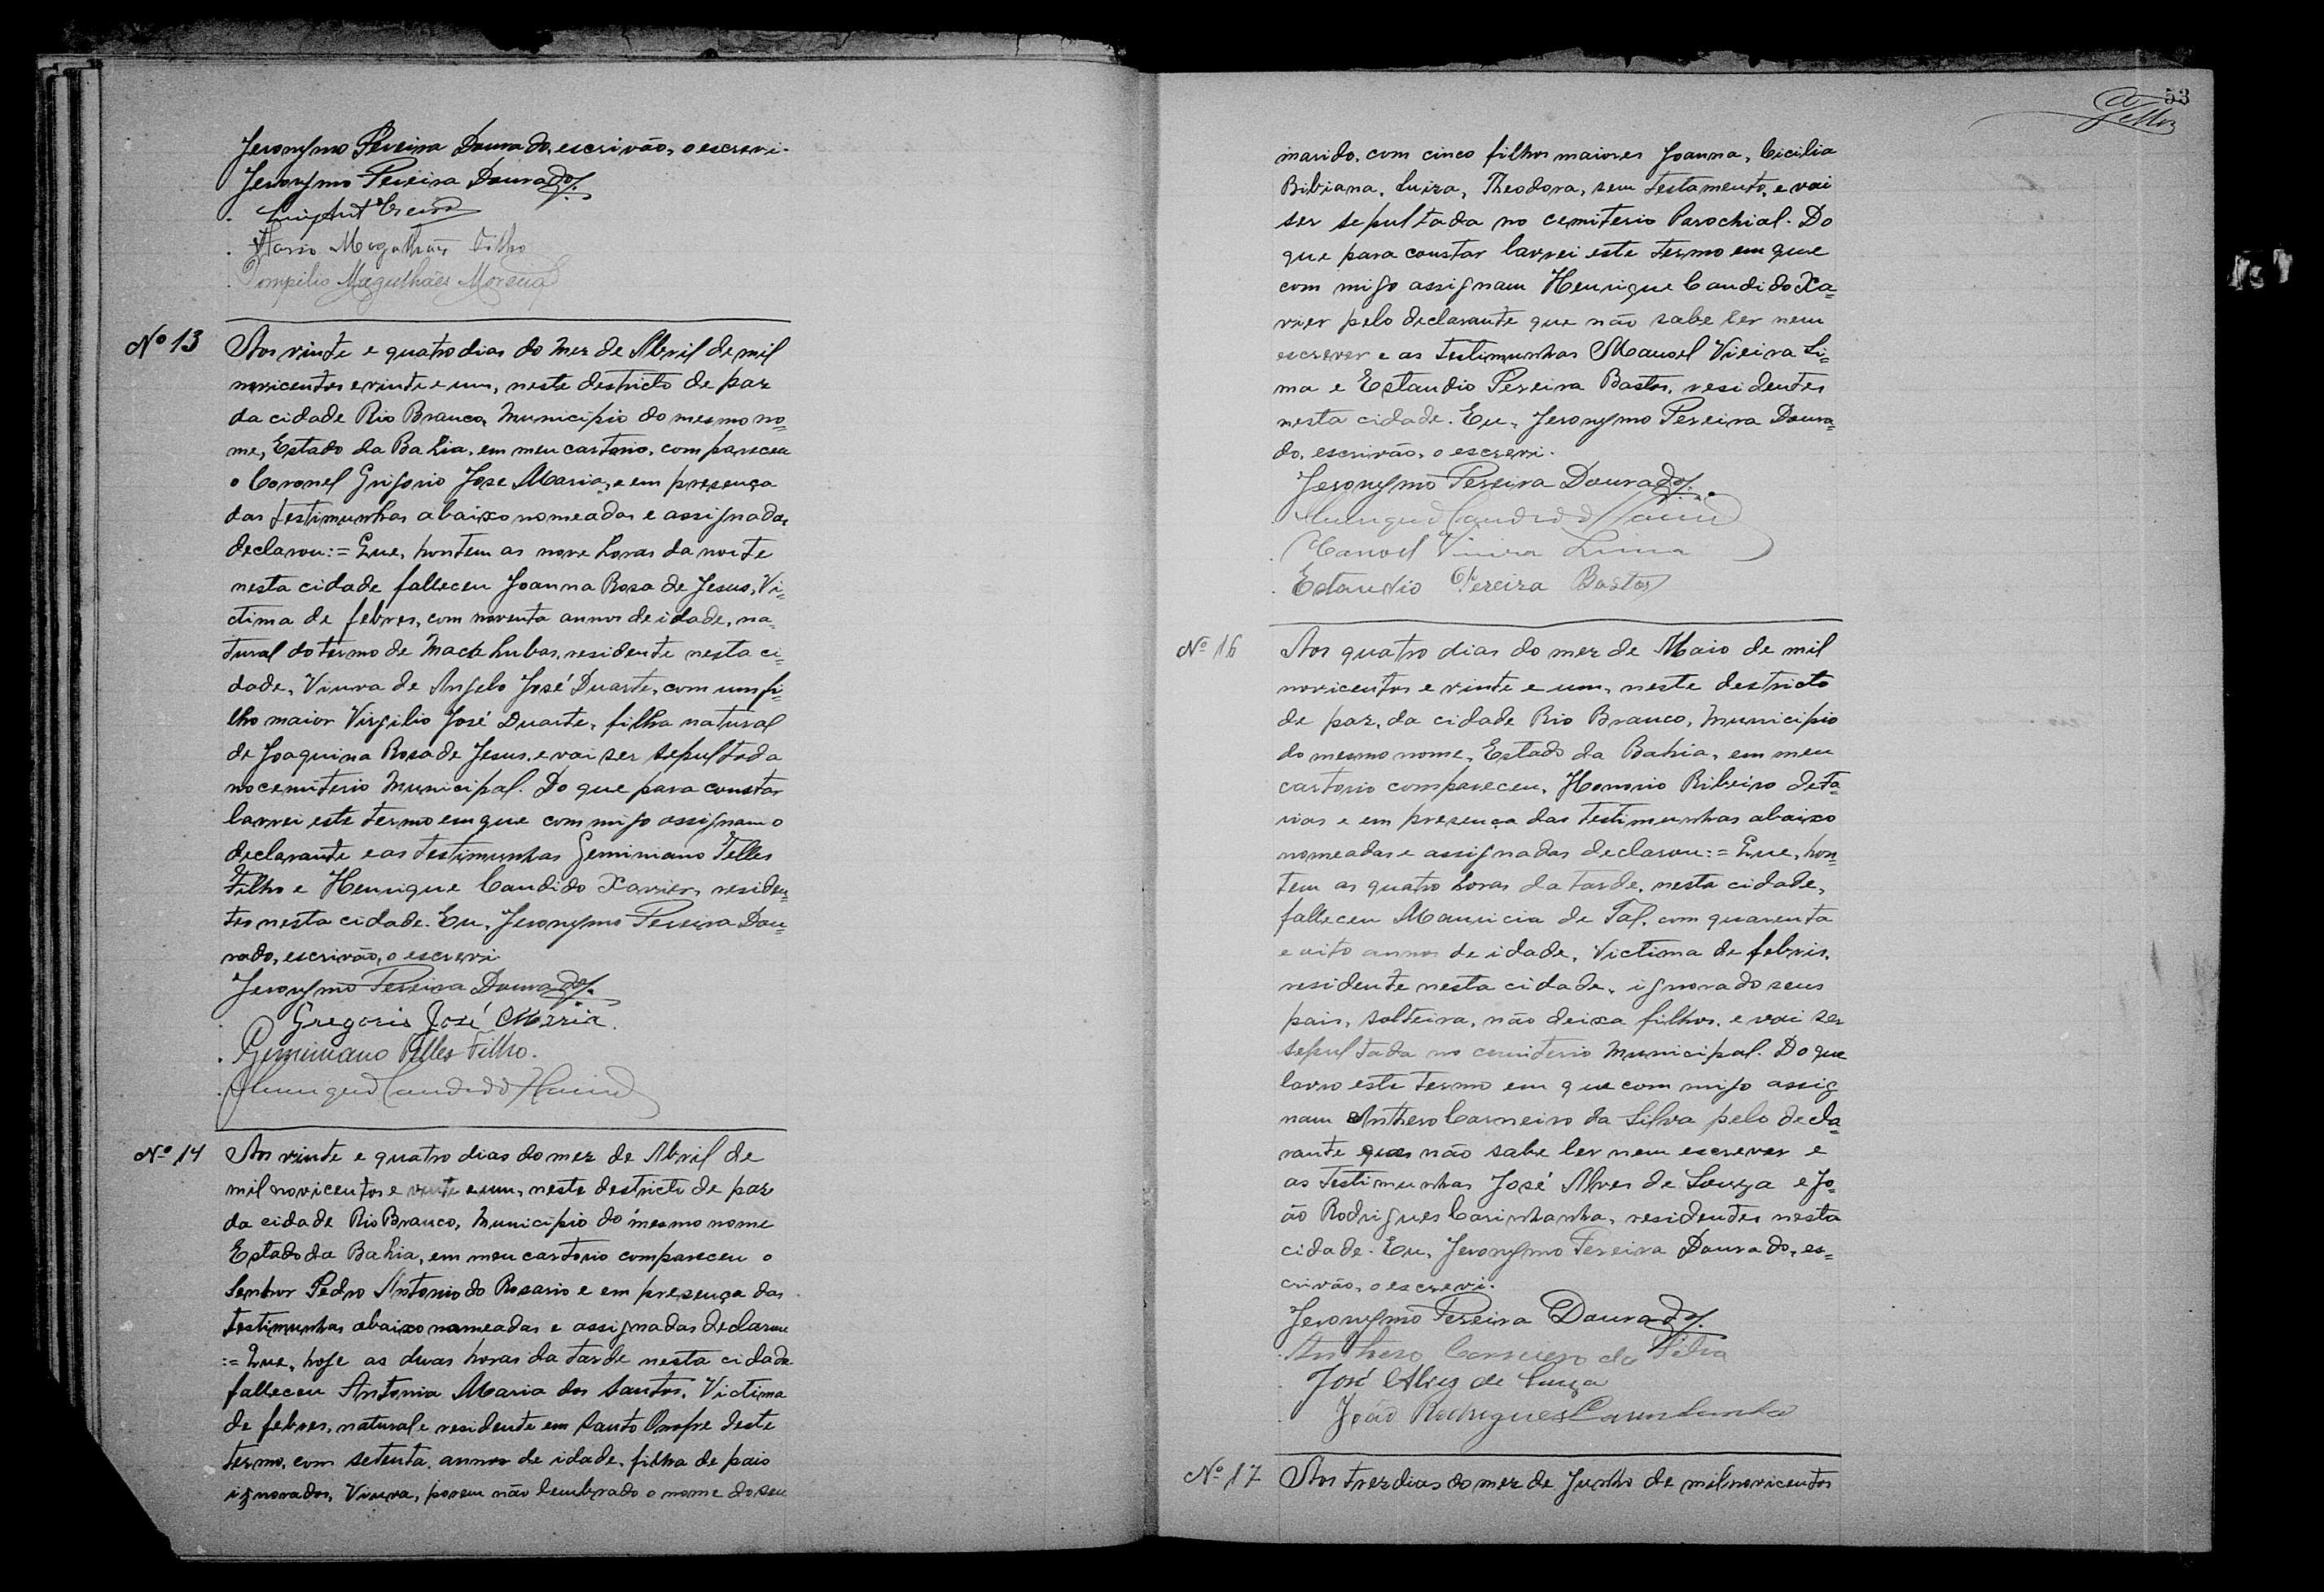 Jeronymo Pereira Dourado, escrivão, o escrevi.
Jeronymo Pereira Dourado.
Magalhães Filho
Pompilio Magalhães Moreira
Nº 13
Aos vinte e quatro dias do mez de Abril de mil
novicentos e vinte e um, neste destricto de paz
da cidade Rio Branco, Municipio do mesmo no=
me, Estado da Bahia, em meu cartorio, compareceu
o Coronel Grigorio Jose Maria, e em presença
das testimunhas abaixo nomeadas e assignadas,
declarou:= Que, hontem as nove horas da noite
nesta cidade falleceu Joanna Rosa de Jesus, Vi=
ctima de febres, com noventa annos de idade, na=
tural do termo de Macahubas, residente nesta ci=
dade, Viuva de Angelo José Duarte, com um fi=
lho maior Virgilio José Duarte, filha natural
de Joaquina Rosa de Jesus, e vai ser sepultada
no cemiterio Municipal. Do que para constar
lavrei este termo em que commigo assignam o
declarante e as testimunhas Geminiano Telles
Filho e Henrique Candido Xavier, residen=
tes nesta cidade. Eu, Jeronymo Pereira Dou=
rado, escrivão, o escrevi.
Jeronymo Pereira Dourado.
Gregorio José Maria.
Geminiano Telles Filho.
Henrique Candido Xavier
Nº 14
Aos vinte e quatro dias do mez de Abril de
mil novicentos e vinte e um, neste destricto de paz
da cidade Rio Branco, Municipio do mesmo nome
Estado da Bahia, em meu cartorio compareceu o
Senhor Pedro Antonio do Rosario e em presença das
testimunhas abaixo nomeadas e assignadas declarou
:= Que, hoje as duas horas da tarde nesta cidade
falleceu Antonia Maria dos Santos, Victima
de febres, natural e residente em Santo Onofre deste
termo, com setenta annos de idade, filha de pais
ignorados, Viuva, porem não lembrado o nome do seu
53
marido, com cinco filhos maiores Joanna, Cicilia
Bibiana, Luiza, Theodora, sem testamento, e vai
ser sepultada no cemiterio Parochial. Do
que para constar lavrei este termo em que
com migo assignam Henrique Candido Xa=
vier pelo declarante que não sabe ler nem
escrever e as testimunhas Manoel Vieira Li=
ma e Estaudio Pereira Bastos, residentes
nesta cidade. Eu, Jeronymo Pereira Doura=
do, escrivão, o escrevi.
Jeronymo Pereira Dourado.
Henrique Candido Xavier
Manoel Vieira Lima
Estaudio Pereira Bastos
Nº 16
Aos quatro dias do mez de Maio de mil
novicentos e vinte e um, neste destricto
de paz, da cidade Rio Branco, Municipio
do mesmo nome, Estado da Bahia, em meu
cartorio compareceu, Honorio Ribeiro de Fa=
rias e em presença das testimunhas abaixo
nomeadas e assignadas declarou:= Que, hon=
tem as quatro horas da tarde, nesta cidade,
falleceu Mauricia de Tal, com quarenta
e oito annos de idade, Victima de febris,
residente nesta cidade, ignorado seus
pais, solteira, não deixa filhos, e vai ser
sepultada no cemiterio Municipal. Do que
lavro este termo em que com migo assig
nam Anthero Carneiro da Silva pelo decla=
rante que não sabe ler nem escrever e
as testimunhas José Alves de Souza e Jo=
ão Rodrigues Carinhanha, residentes nesta
cidade. Eu, Jeronymo Pereira Dourado, es=
crivão, o escrevi.
Jeronymo Pereira Dourado.
Anthero Carneiro da Silva
José Alves de Souza
João Rodrigues Carinhanha
Nº 17
Aos trez dias do mez de Junho de mil novicentos